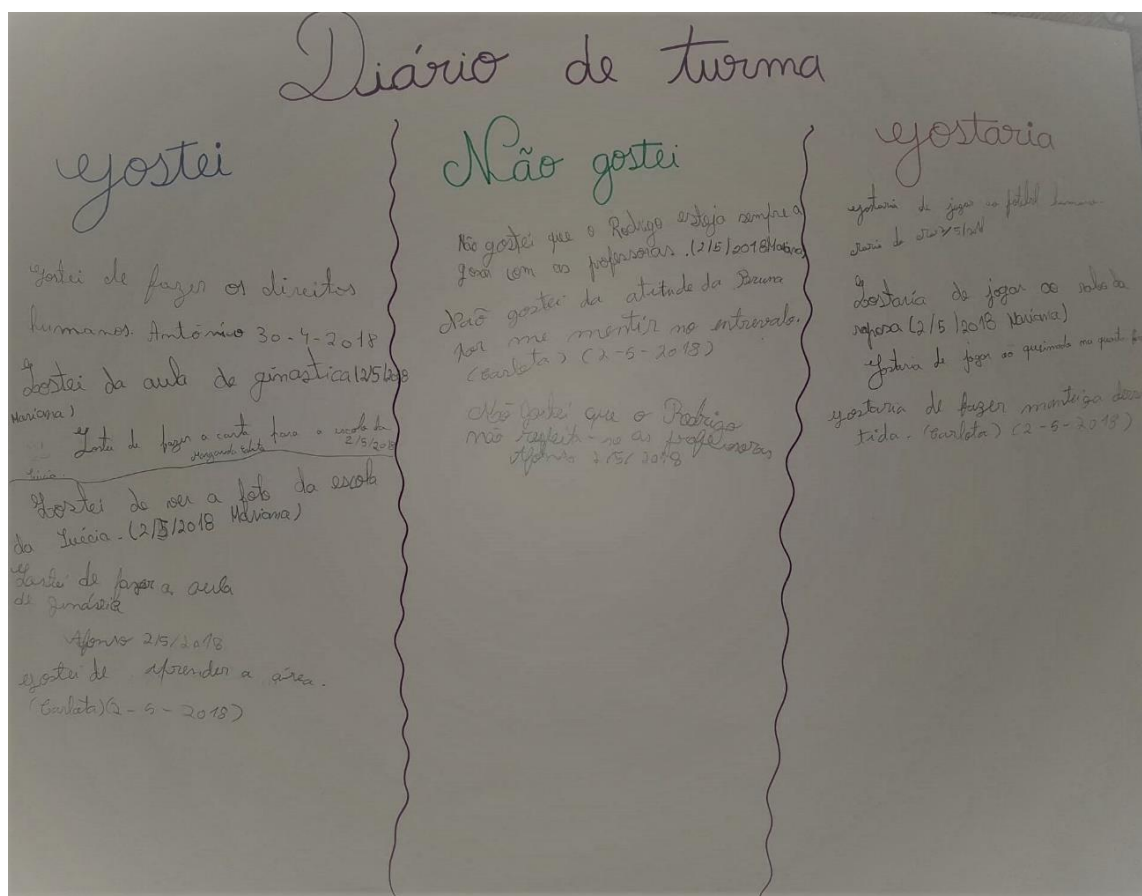 Diário de turma
Gostei
Gostei de fazer os direitos
humanos. António 30-4-2018
Gostei da aula de ginastica (2/5/2018
Mariana)
Gostei de fazer a carta para a escola da
2/5/2018
Suécia
Gostei de ver a foto da escola
da Suécia. (2/5/2018 Mariana)
Gostei de fazer a aula
de
Afonso 2/5/2018
Gostei de aprender a área.
(Carlota) (2-5-2018)
Não gostei
Não gostei que o Rodrigo esteja sempre a
gozar com as professoras. (2/5/2018 Mariana)
Não gostei da atitude da Bruna
por me mentir no entrevalo.
(Carlota) (2-5-2018)
Não gostei que o Rodrigo
não as professoras
Afonso 2/5/2018
Gostaria
Gostaria de jogar ao futebol humano.
Gostaria de jogar ao rabo da
raposa (2/5/2018 Mariana)
Gostaria de jogar ao queimado
Gostaria de fazer manteiga derre
tida. (Carlota) (2-5-2018)